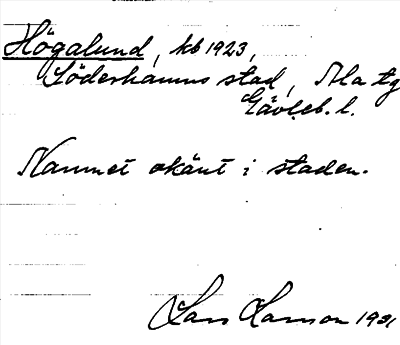 Högalund, kb 1923,
Söderhamns stad, Ala tg
Gävleb. l.
Namnet okänt i staden.
Lars Larson 1931